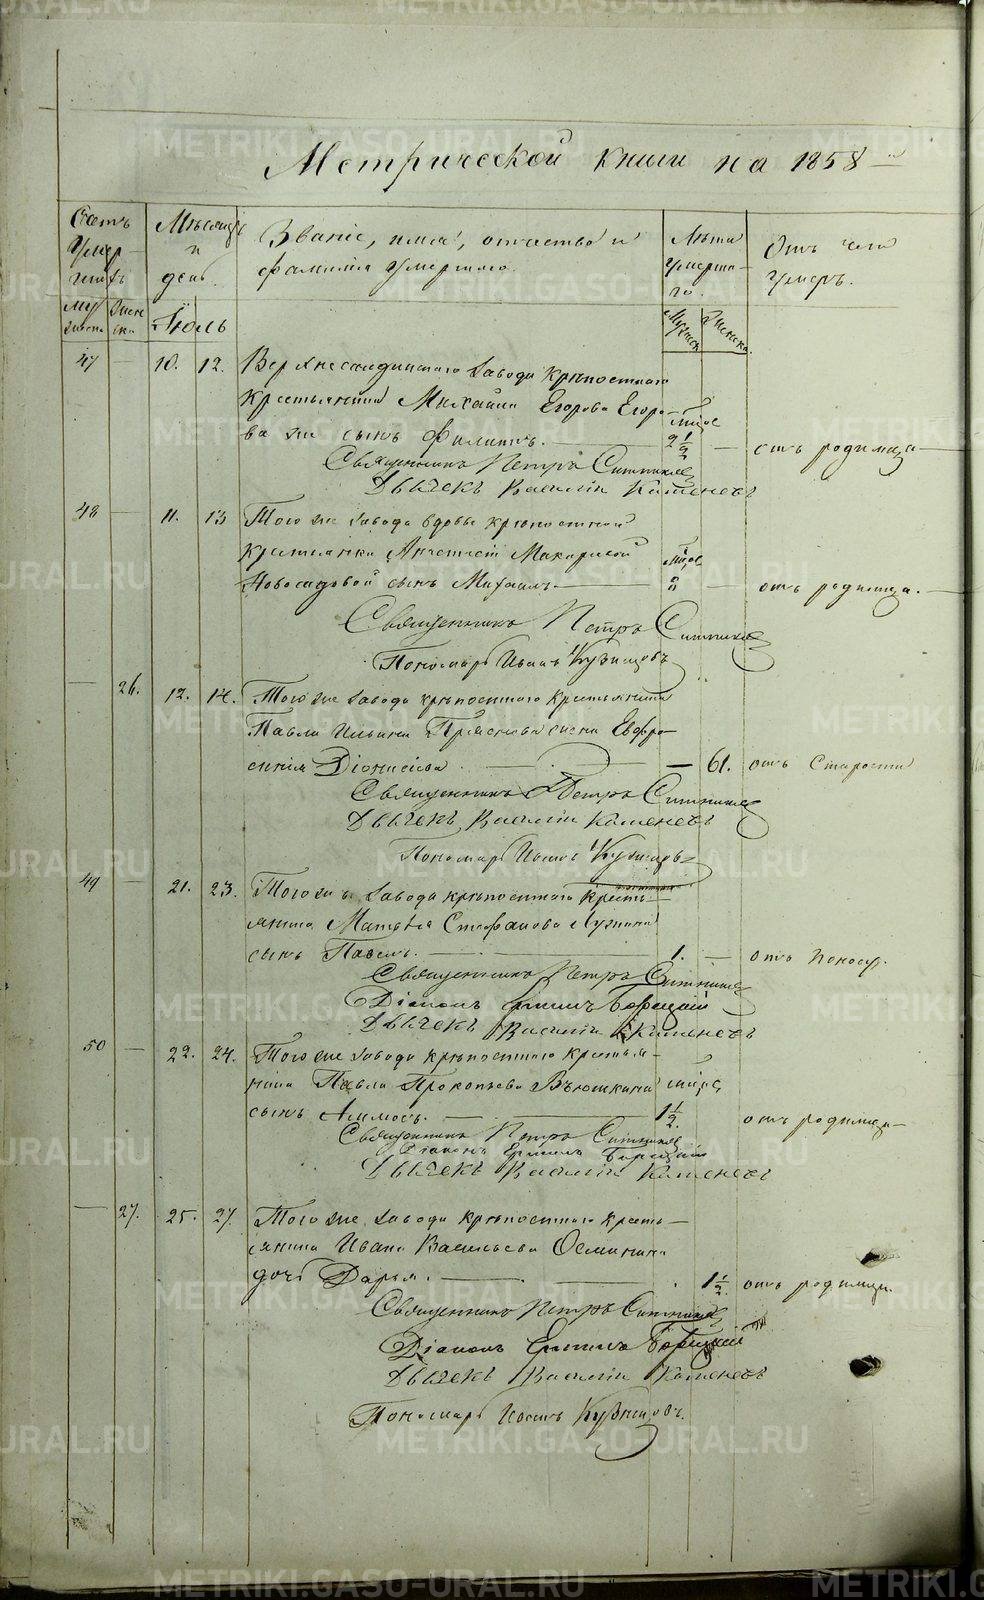 Метрической книги на 1858
Счетъ умершихъ
Мѣсяцъ и день.
Званіе, имя, отчество и
фамилія умершаго.
Лѣта умершаго.
Отъ чего умеръ.
мужеска
женска
Іюль
Мужеск.
Женска.
47 — 10. 12. Верхнесалдинскаго завода крѣпостнаго
крестьянина Михаила Егорова Егоро-
ва же сынъ Филиппъ. — 2 1/2 — отъ родимца
Священникъ Петръ Ситниковъ
Дьячекъ Василій Каменевъ
48 — 11. 13 Того же завода вдовы крѣпостной
крестьянки Анастасіи Макаровой
Новосадовой сынъ Михаилъ. — 2 — отъ родимца.
Священникъ Петръ Ситниковъ
Пономарь Иванъ Кузнецовъ
— 26. 12. 14. Того же завода крѣпостнаго крестьянина
Павла Ильина жена Евфро-
синія Діонисіева — 61. отъ старости
Священникъ Петръ Ситниковъ
Дьячекъ Василій Каменевъ
Пономарь Иванъ Кузнецовъ
49 — 21. 23. Того жъ завода крѣпостнаго кресть-
янина Матвѣя Стефанова
сынъ Павелъ. — 1. — отъ поноса.
Священникъ Петръ Ситниковъ
Діаконъ Ермилъ
Дьячекъ Василій Каменевъ
50 — 22. 24. Того же завода крѣпостнаго крестья-
нина Павла Прокопьева Вьюшкина
сынъ — 1 1/2. отъ родимца —
Священникъ Петръ Ситниковъ
Діаконъ Ермилъ
Дьячекъ Василій Каменевъ
— 27. 25. 27. Того же завода крѣпостнаго кресть-
янина Ивана Васильева Осминина
дочь Дарья. — 1 1/2. отъ родимца.
Священникъ Петръ Ситниковъ
Діаконъ Ермилъ
Дьячекъ Василій Каменевъ
Пономарь Иванъ Кузнецовъ.
METRIKI.GASO-URAL.RU